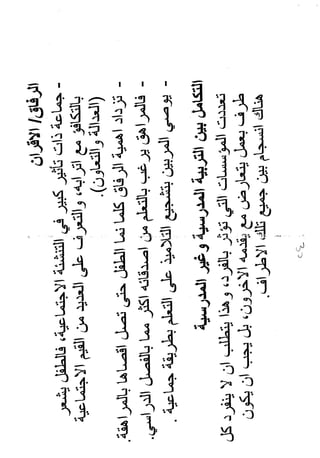 الرفاق/ الاقران
- جماعة ذات تأثير كبير في التنشئة الاجتماعية، فالطفل يشعر
بالتكافؤ مع اترابه، والتعرف على العديد من القيم الاجتماعية
(العدالة والتعاون).
- تزداد اهمية الرفاق كلما نما الطفل حتى تصل اقصاها بالمراهقة.
- فالمراهق يرغب بالتعلم من اصدقائه اكثر مما بالفصل الدراسي.
- يوصي المربين بتشجيع التلاميذ على التعلم بطريقة جماعية.
التكامل بين التربية المدرسية وغير المدرسية
تعددت المؤسسات التي تؤثر بالفرد، وهذا يتطلب ان لا ينفرد كل
طرف بعمل يتعارض مع يقدمه الاخرون، بل يجب ان يكون
هناك انسجام بين جميع تلك الاطراف.